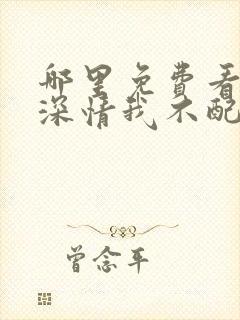 哪里免费看
深情我不配
曾念平